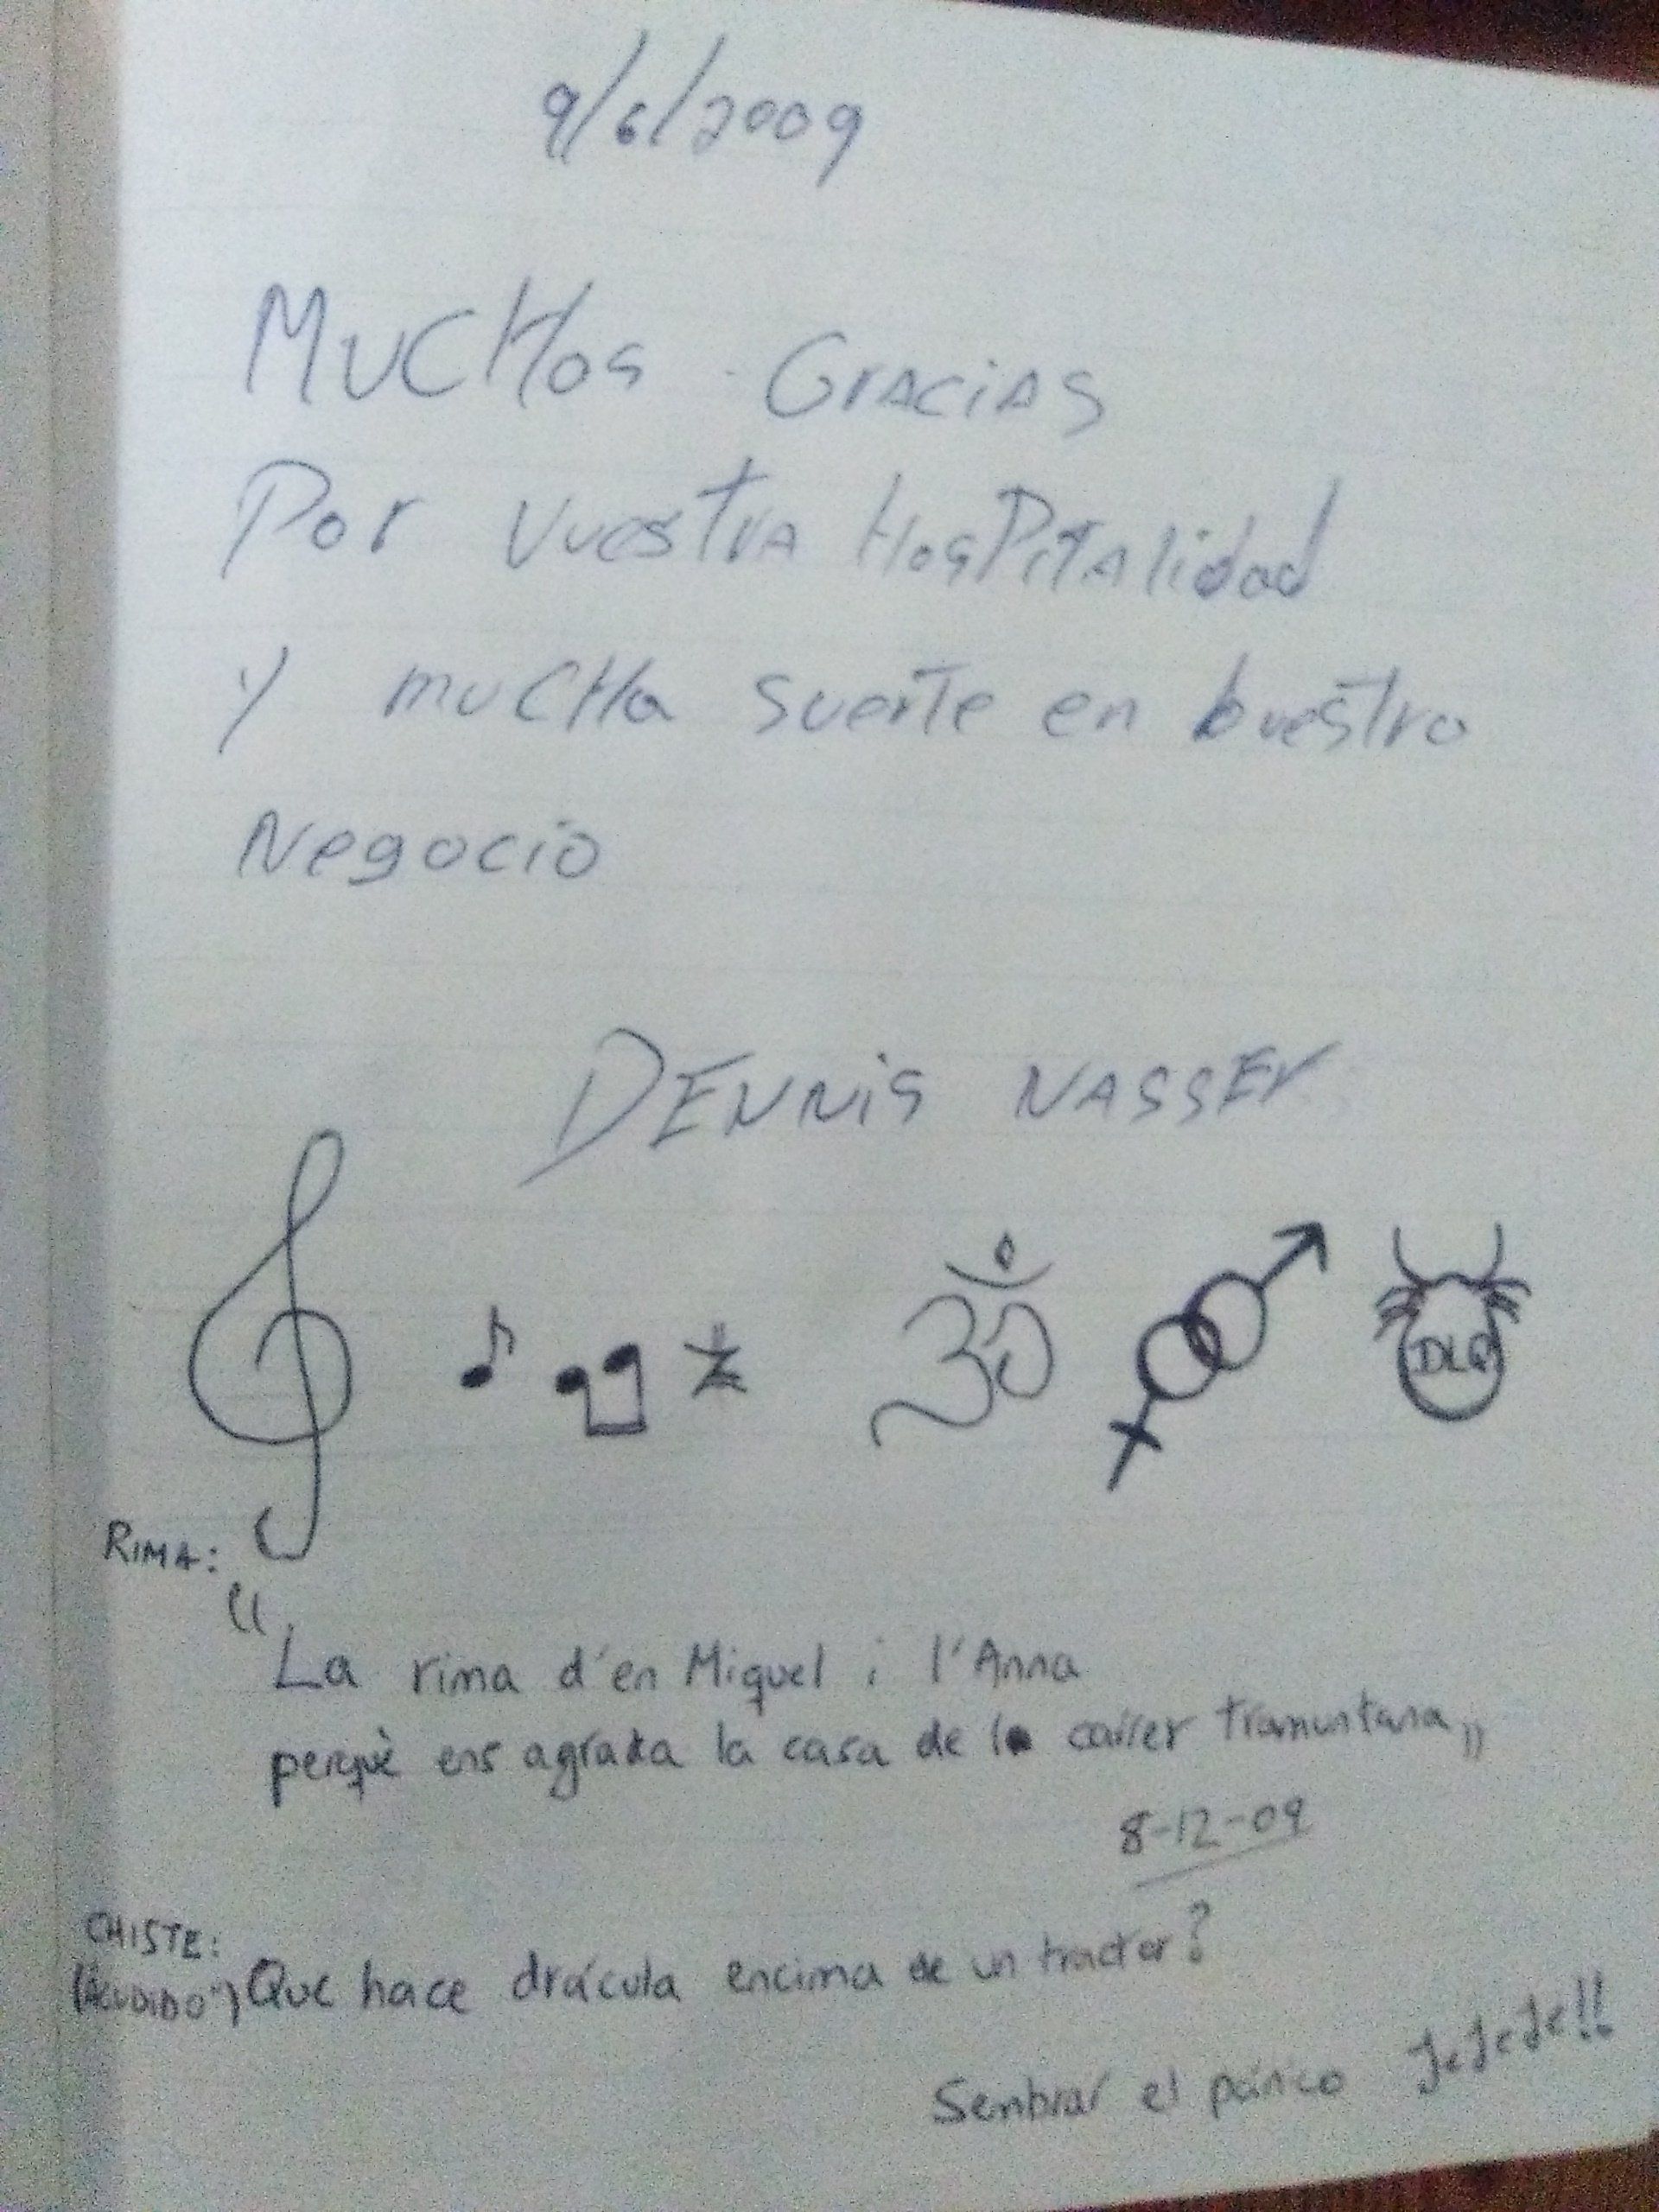 9/6/2009
MUCHos Gracias
Por vuestra HosPitalidad
Y muCHa suerte en buestro
Negocio
DENNis NASSEr
ॐ
DLQ
RIMA:
"La rima d'en Miquel i l'Anna
perquè ens agrada la casa de carrer tramuntana"
8-12-09
CHISTE:
("ACUDIDO") Que hace drácula encima de un tractor?
Sembrar el pánico JeJeJeJe!!